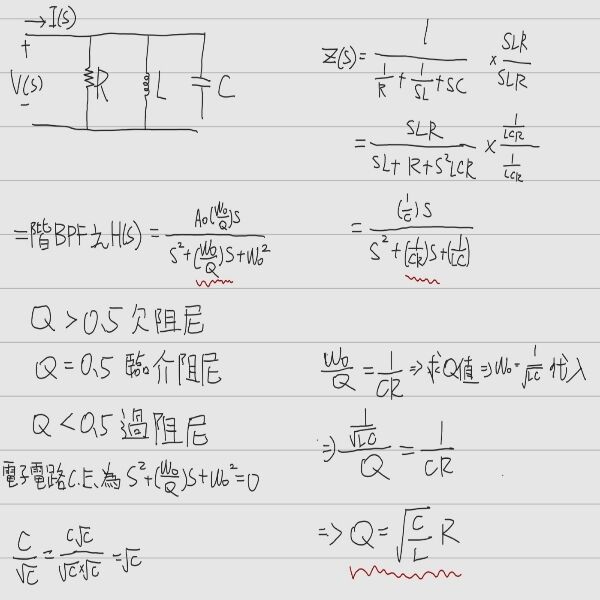 →I(s)
+
V(s)
-
R L C
Z(s) = 1 / (1/R + 1/SL + SC) × SLR/SLR
= SLR / (SL + R + S²LCR) × (1/LCR) / (1/LCR)
= (1/C)S / (S² + (1/CR)S + (1/LC))
二階BPF之H(s) = A₀(W₀/Q)S / (S² + (W₀/Q)S + W₀²)
Q > 0.5 欠阻尼
Q = 0.5 臨介阻尼
Q < 0.5 過阻尼
電子電路C.E.為 S² + (W₀/Q)S + W₀² = 0
C/√C = C√C / (√C×√C) = √C
W₀/Q = 1/CR ⇒ 求Q值 ⇒ W₀ = 1/√LC 代入
⇒ (1/√LC) / Q = 1/CR
=> Q = √(C/L) R